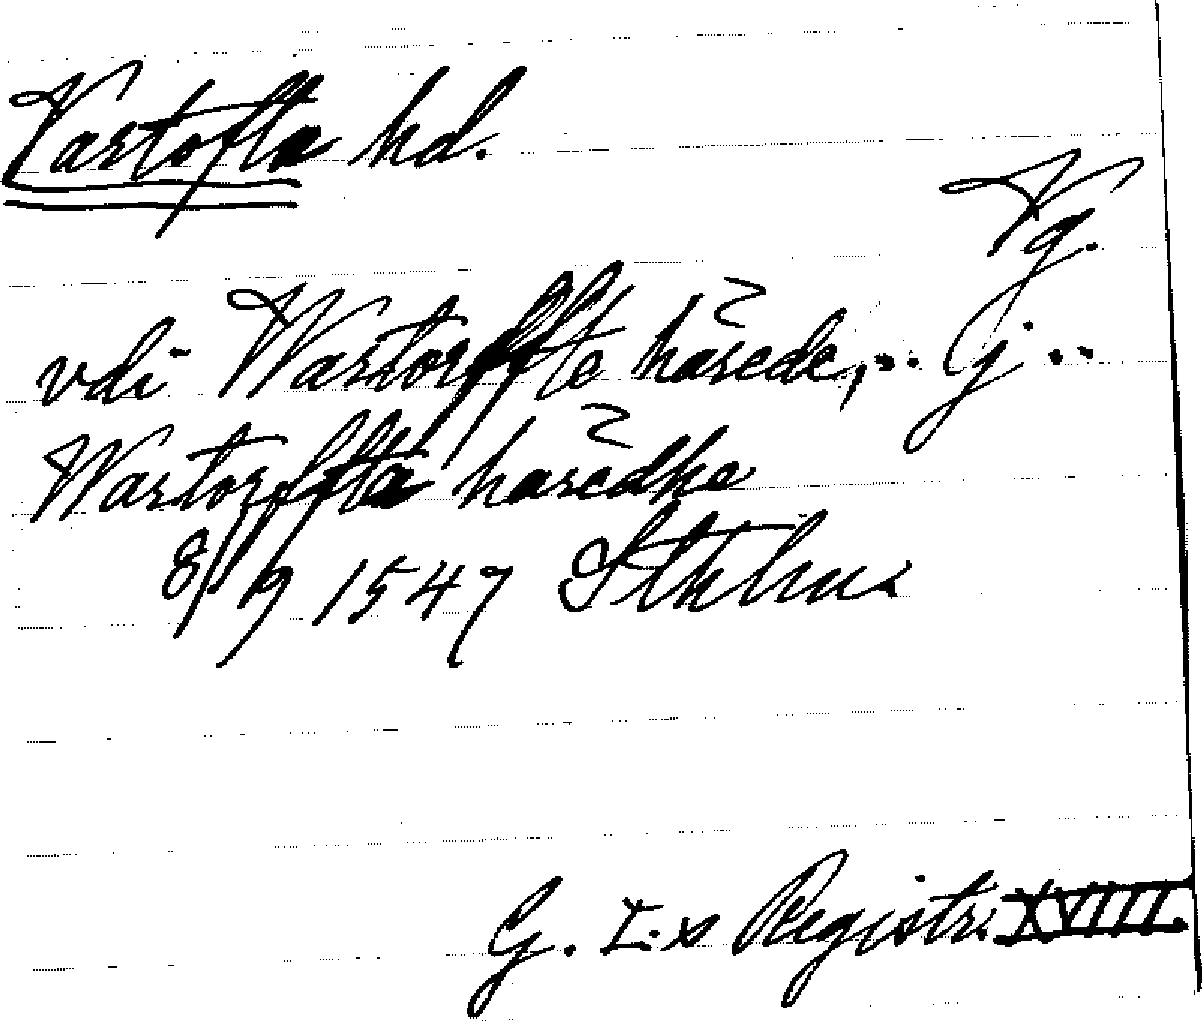 Vartofta hd.
Vg.
vdi Wartorffte härede, .. j ..
Wartorffta häredhe
8/9 1547 Sthlm
G. I:s Registr. XVIII.